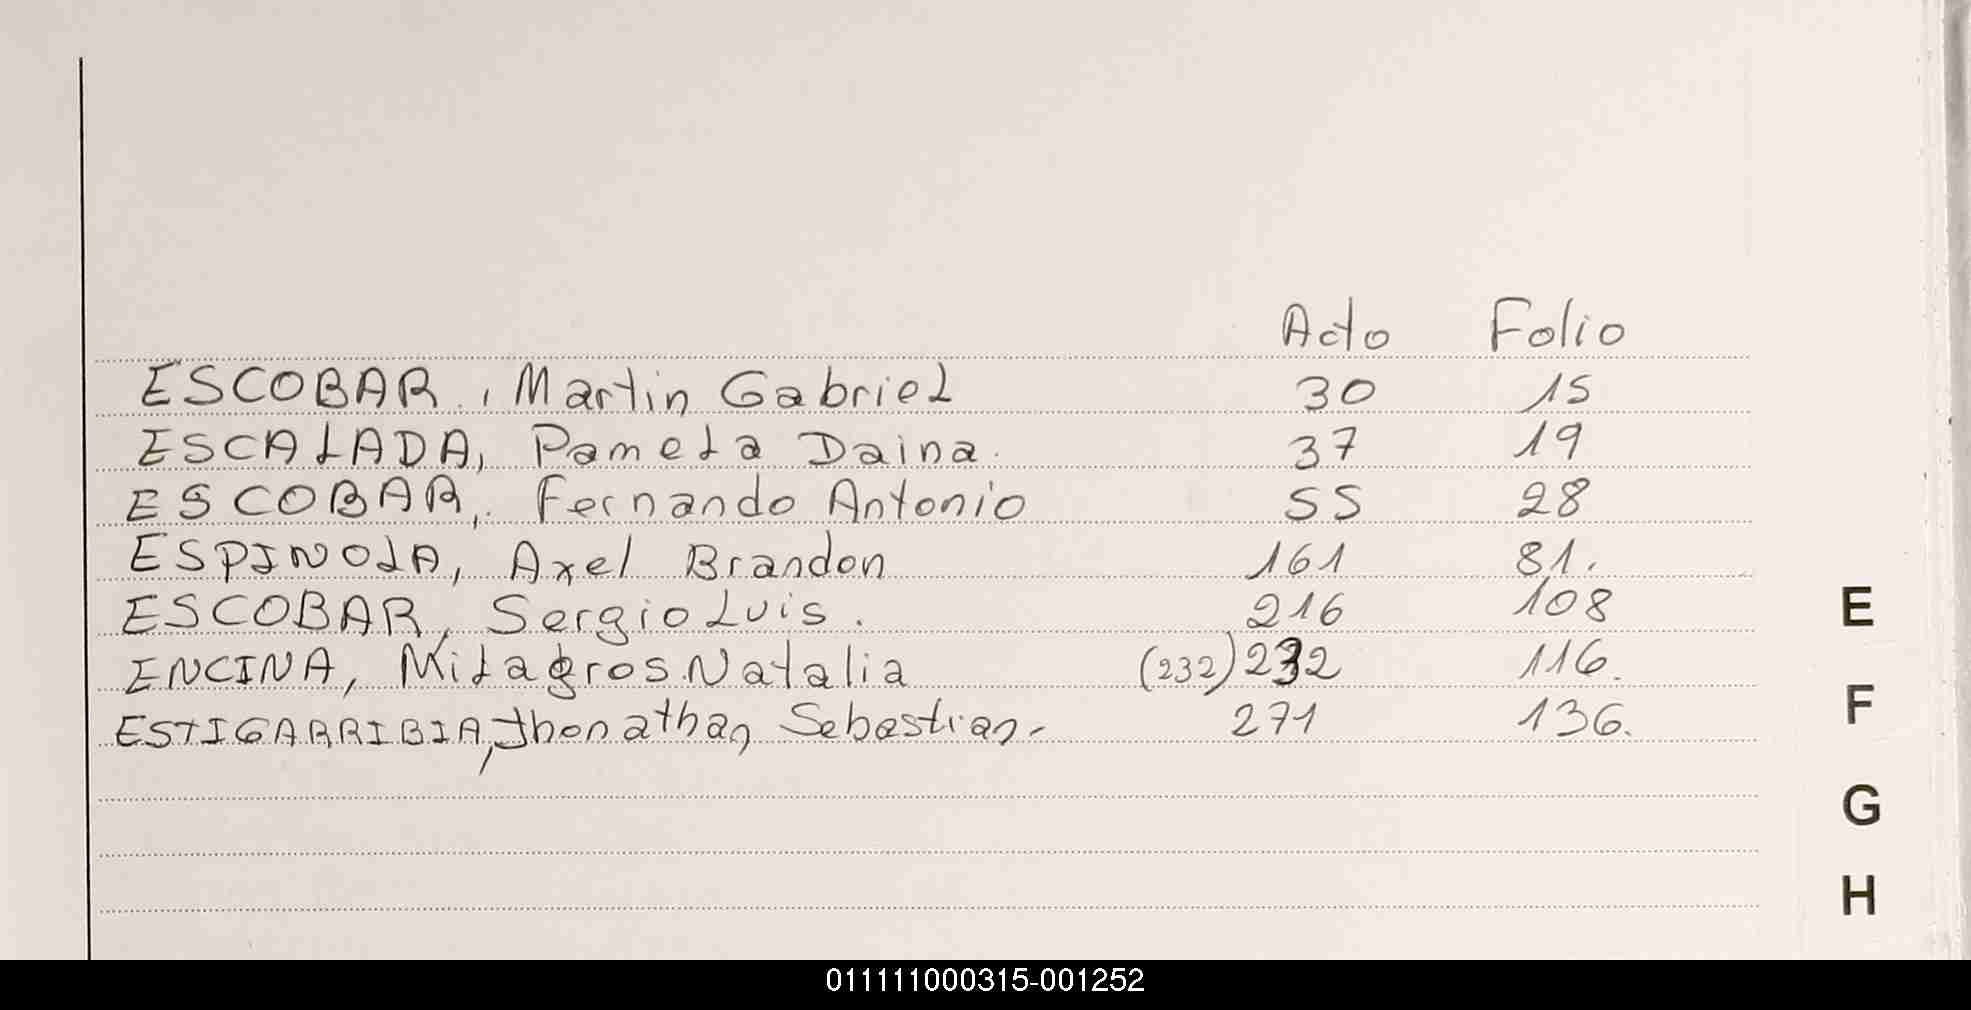 Acto Folio
ESCOBAR, Martin Gabriel 30 15
ESCALADA, Pamela Daina. 37 19
ESCOBAR, Fernando Antonio 55 28
ESPINOLA, Axel Brandon 161 81.
ESCOBAR, Sergio Luis. 216 108
ENCINA, Milagros Natalia (232) 232 116.
ESTIGARRIBIA, Jhonathan Sebastian. 271 136.
E
F
G
H
011111000315-001252